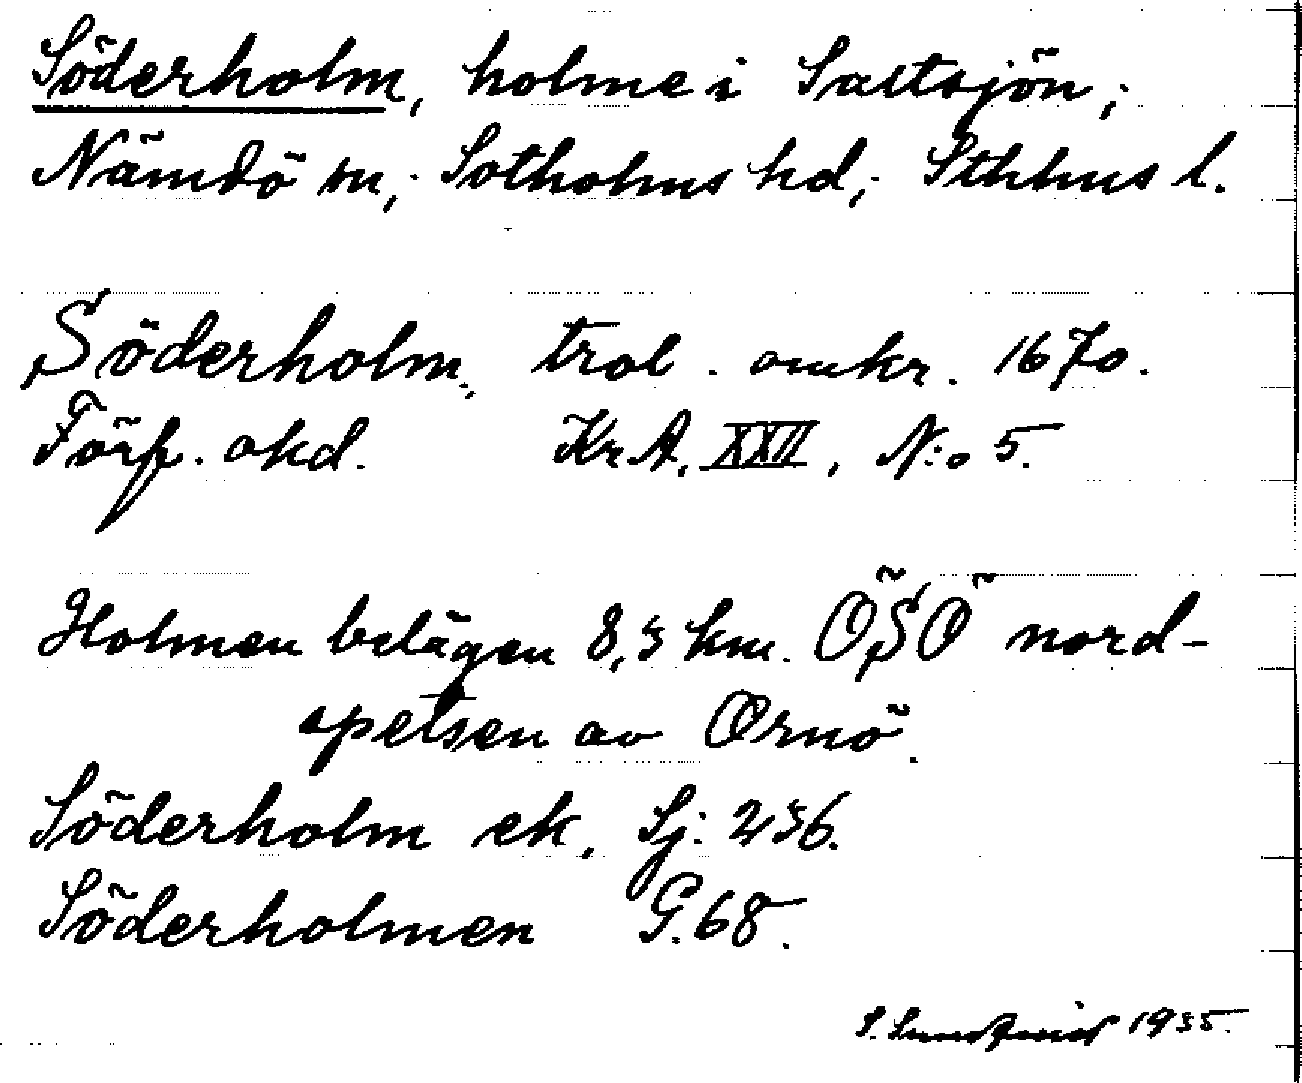 Söderholm, holme i Saltsjön,
Nämdö sn, Sotholms hd, Sthlms l.
Söderholm, trol. omkr. 1670.
Förf. okd. Kr A. XXII, N:o 5.
Holmen belägen 8,5 km. ÖSÖ nord-
spetsen av Ornö.
Söderholm ek. Sj: 236.
Söderholmen G. 68.
S. Sundqvist 1935.